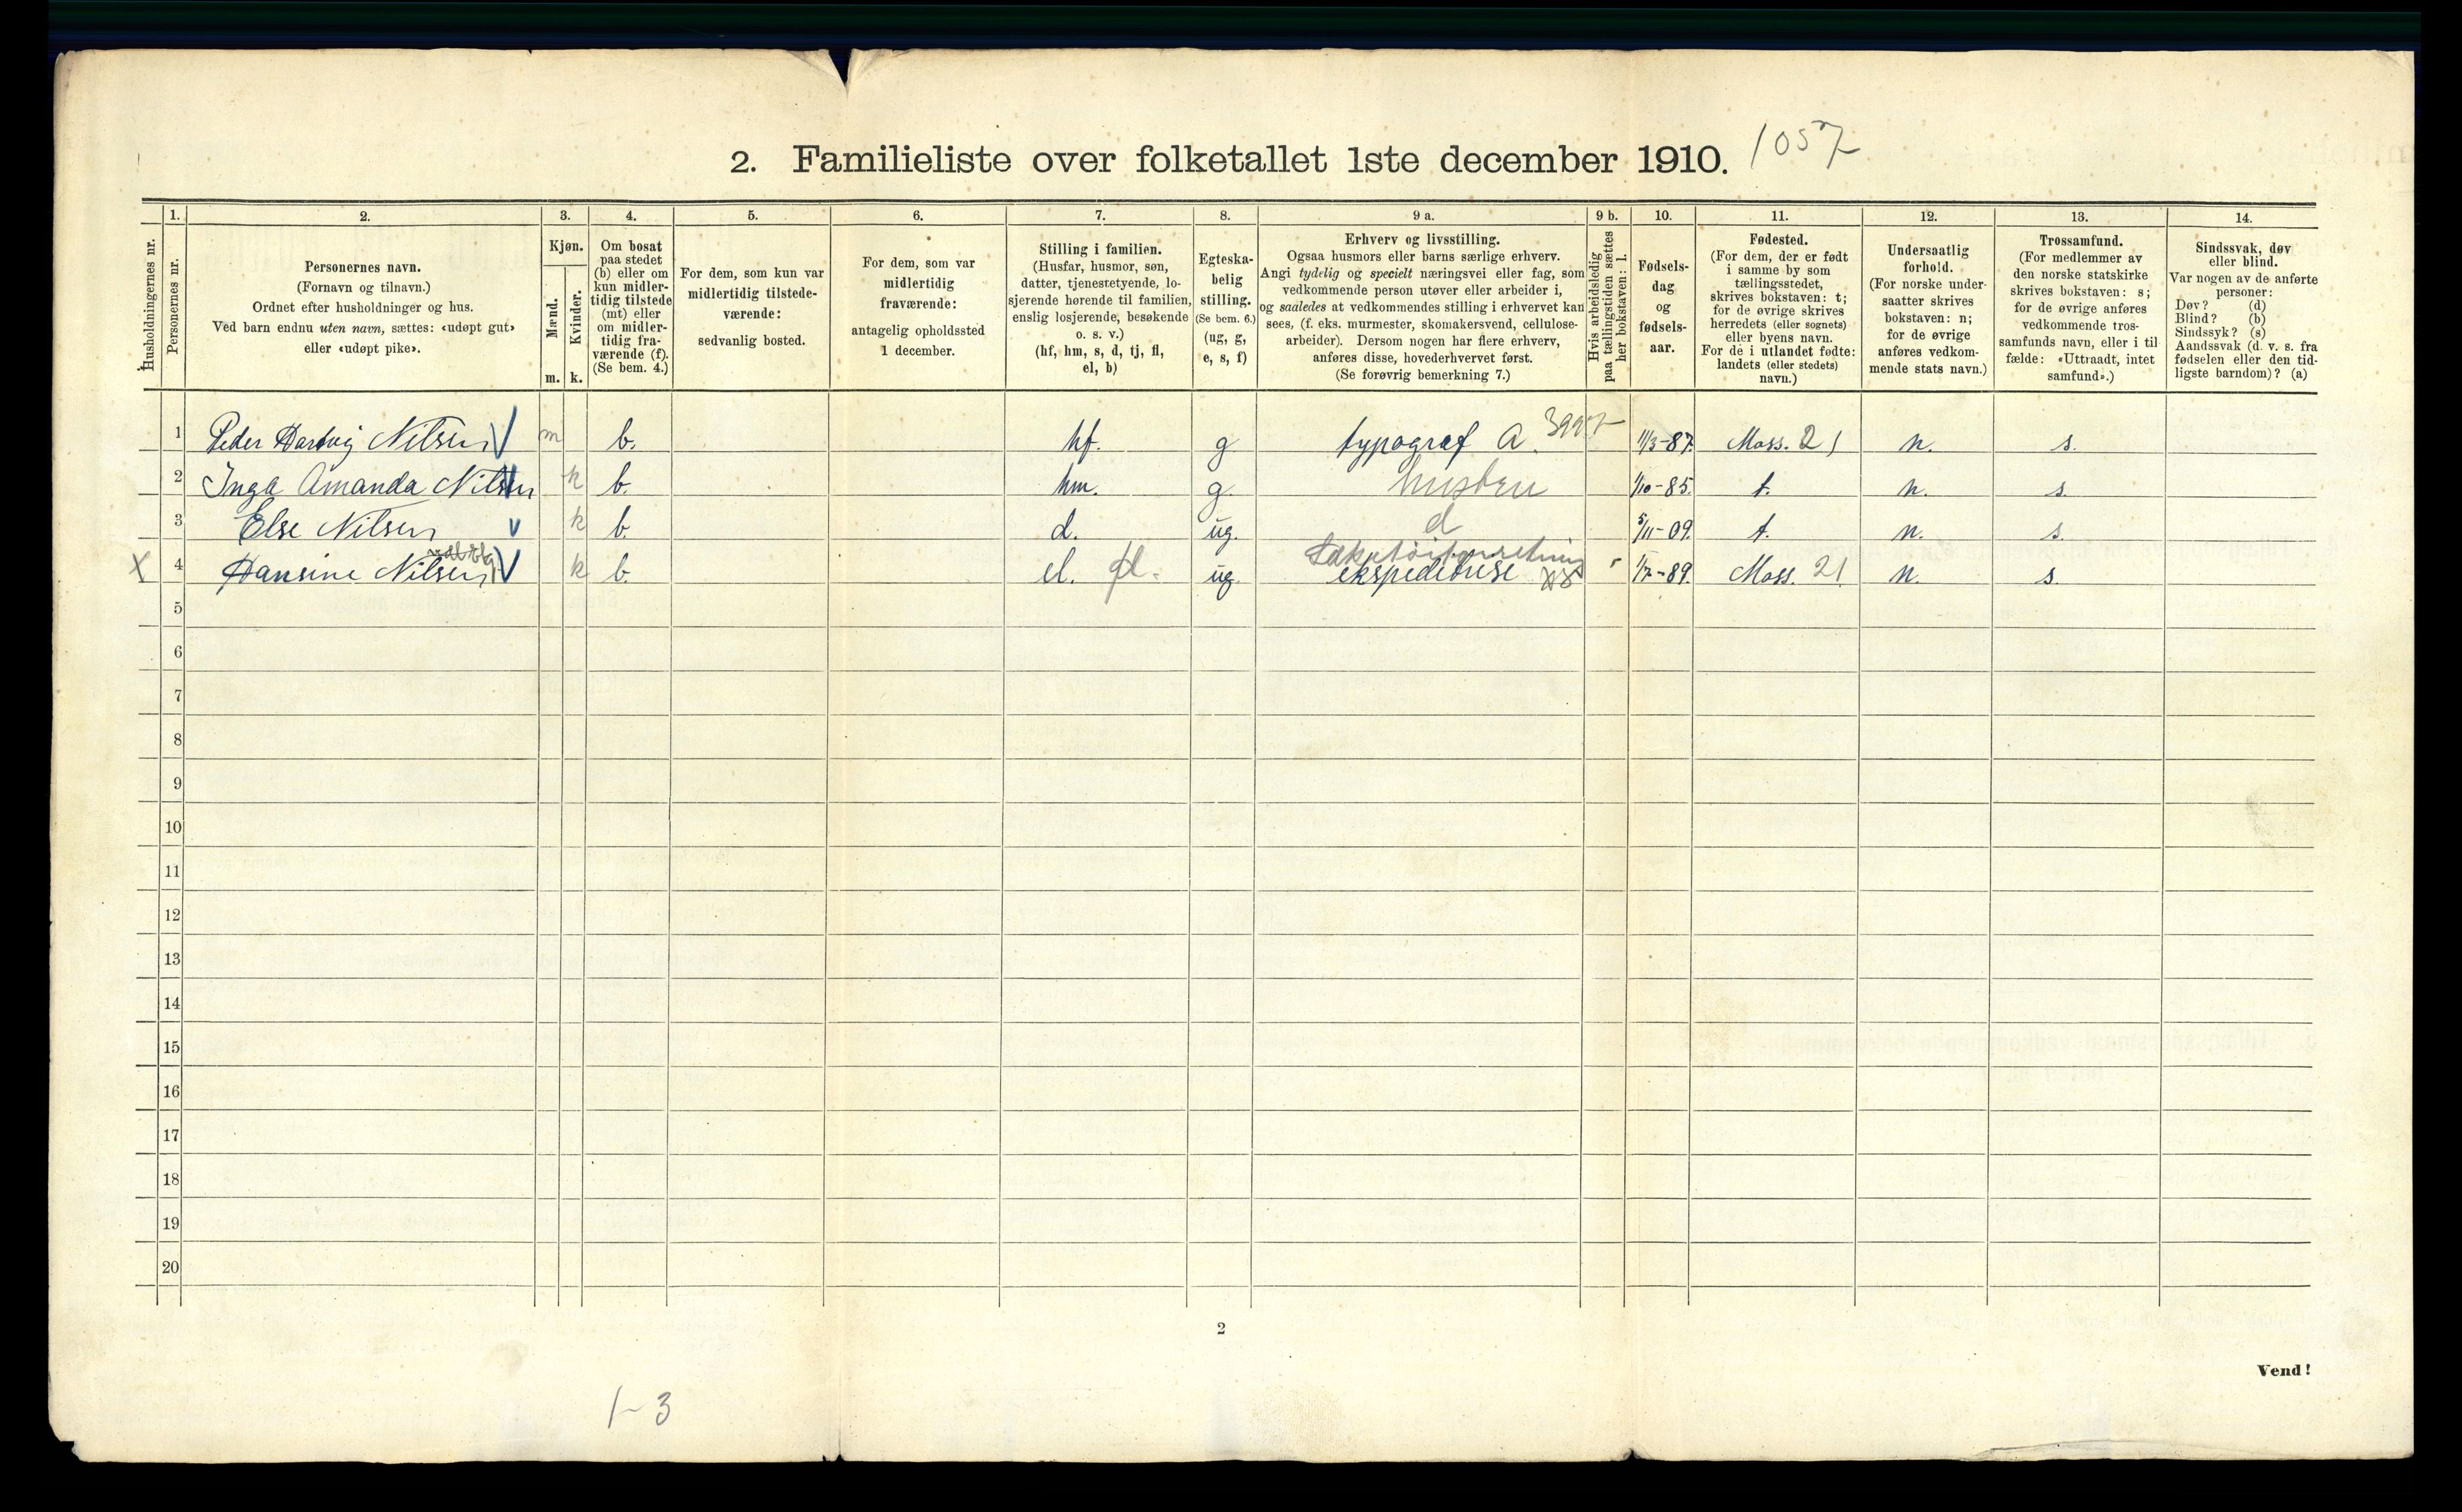 2. Familieliste over folketallet 1ste december 1910. 1057
1. 2. 3. 4. 5. 6. 7. 8. 9 a. 9 b. 10. 11. 12. 13. 14.
Husholdningernes nr.
Personernes nr.
Personernes navn.
(Fornavn og tilnavn.)
Ordnet efter husholdninger og hus.
Ved barn endnu uten navn, sættes: «udøpt gut»
eller «udøpt pike».
Kjøn.
Mænd.
Kvinder.
m. k.
Om bosat
paa stedet
(b) eller om
kun midler-
tidig tilstede
(mt) eller
om midler-
tidig fra-
værende (f).
(Se bem. 4.)
For dem, som kun var
midlertidig tilstede-
værende:
sedvanlig bosted.
For dem, som var
midlertidig
fraværende:
antagelig opholdssted
1 december.
Stilling i familien.
(Husfar, husmor, søn,
datter, tjenestetyende, lo-
sjerende hørende til familien,
enslig losjerende, besøkende
o. s. v.)
(hf, hm, s, d, tj, fl,
el, b)
Egteska-
belig
stilling.
(Se bem. 6.)
(ug, g,
e, s, f)
Erhverv og livsstilling.
Ogsaa husmors eller barns særlige erhverv.
Angi tydelig og specielt næringsvei eller fag, som
vedkommende person utøver eller arbeider i,
og saaledes at vedkommendes stilling i erhvervet kan
sees, (f. eks. murmester, skomakersvend, cellulose-
arbeider). Dersom nogen har flere erhverv,
anføres disse, hovederhvervet først.
(Se forøvrig bemerkning 7.)
Hvis arbeidsledig
paa tællingstiden sættes
her bokstaven: l.
Fødsels-
dag
og
fødsels-
aar.
Fødested.
(For dem, der er født
i samme by som
tællingsstedet,
skrives bokstaven: t;
for de øvrige skrives
herredets (eller sognets)
eller byens navn.
For de i utlandet fødte:
landets (eller stedets)
navn.)
Undersaatlig
forhold.
(For norske under-
saatter skrives
bokstaven: n;
for de øvrige
anføres vedkom-
mende stats navn.)
Trossamfund.
(For medlemmer av
den norske statskirke
skrives bokstaven: s;
for de øvrige anføres
vedkommende tros-
samfunds navn, eller i til-
fælde: «Uttraadt, intet
samfund».)
Sindssvak, døv
eller blind.
Var nogen av de anførte
personer:
Døv? (d)
Blind? (b)
Sindssyk? (s)
Aandssvak (d. v. s. fra
fødselen eller den tid-
ligste barndom)? (a)
1 Peder Hartvig Nilsen m b. hf. g typograf A. 3997 11/3-87. Moss. 21 n. s.
2 Inga Amanda Nilsen k b. hm. g. hustru 1/10-85. t. n. s.
3 Else Nilsen k b. d. ug. d 5/11-09. t. n. s.
X 4 Hansine Nilsen k b. el. fl. ug. ekspeditrise 1/7-89. Moss. 21. n. s.
5
6
7
8
9
10
11
12
13
14
15
16
17
18
19
20
2
Vend!
1-3